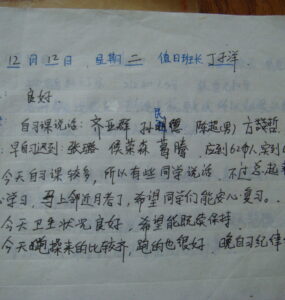 12月12日 星期二 值日班长 丁子洋
: 良好
自习课说话: 齐亚群 孙民德 陈超(男) 方晓哲
:早自习迟到: 张璐 侯荣森 葛腾 应到62人,实到6
今天自习课较多,所以有些同学说话.不过总起来
心学习,马上邻近月考了,希望同学们能安心复习.
今天卫生状况良好,希望能继续保持.
今天跑操来的比较齐,跑的也很好.晚自习纪律